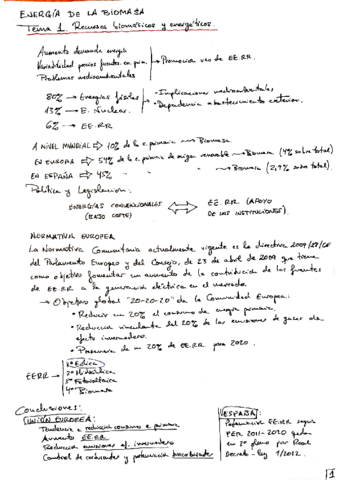 ENERGÍA DE LA BIOMASA
Tema 1. Recursos biomásicos y energéticos.
Aumento demanda energía
Variabilidad precios fuentes en. prim. → Promoción uso de EE.RR
Problemas medioambientales
80% → Energías fósiles → · Implicaciones medioambientales
13% → E. Nuclear. · Dependencia abastecimiento exterior.
6% → EE.RR
A NIVEL MUNDIAL ⇒ 10% de la e. primaria → Biomasa
EN EUROPA ⇒ 54% de la e. primaria de origen renovable → Biomasa (4% sobre total)
EN ESPAÑA ⇒ 45% " " → Biomasa (2,9% sobre total)
Política y Legislación:
ENERGÍAS CONVENCIONALES (BAJO COSTE) ⇔ EE.RR. (APOYO DE LAS INSTITUCIONES).
NORMATIVA EUROPEA
La Normativa Comunitaria actualmente vigente es la directiva 2009/28/CE
del Parlamento Europeo y del Consejo, de 23 de abril de 2009 que tiene
como objetivo fomentar un aumento de la contribución de las fuentes
de EE.RR a la generación eléctrica en el mercado.
→ Objetivo global "20-20-20" de la Comunidad Europea:
· Reducir un 20% el consumo de energía primaria.
· Reducción vinculante del 20% de las emisiones de gases de
efecto invernadero.
· Presencia de un 20% de EE.RR. para 2020.
EERR
1º Eólica
2º Hidráulica
3º Fotovoltaica
4º Biomasa
Conclusiones:
UNIÓN EUROPEA:
Tendencia a reducir consumo e. primaria
Aumento EE.RR
Reducción emisiones ef. invernadero
Control de y potenciación biocarburantes
ESPAÑA:
Potenciación EE.RR según
PER 2011-2020
en 2º plano por Real
Decreto-Ley 1/2012.
1